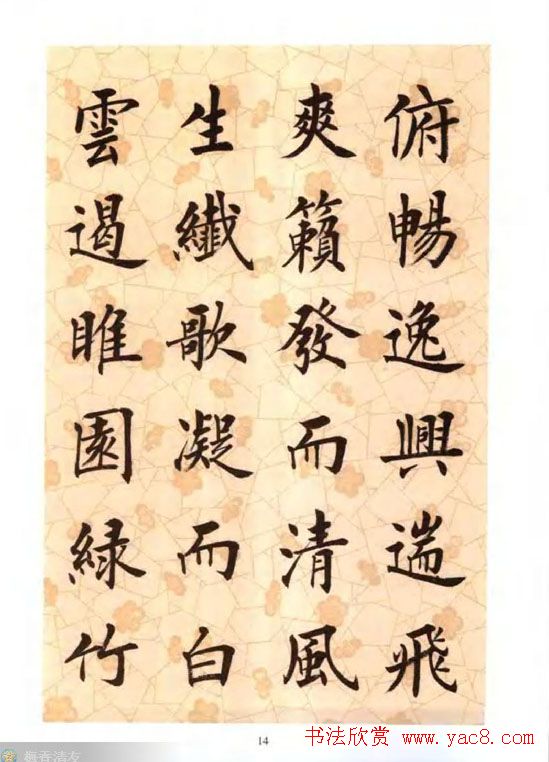 俯暢逸興遄飛
爽籟發而清風
生纖歌凝而白
雲遏睢園綠竹
14
书法欣赏 www.yac8.com
梅香清友